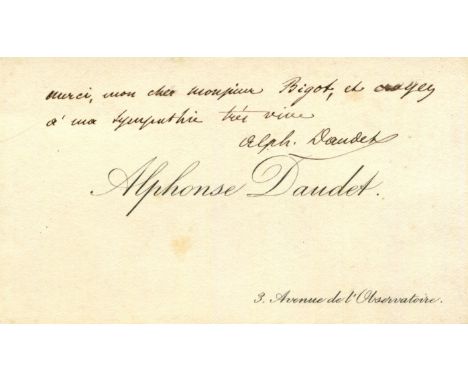 merci, mon cher monsieur Bigot, et croyez
à ma sympathie très vive
Alph. Daudet
Alphonse Daudet.
3. Avenue de l'Observatoire.